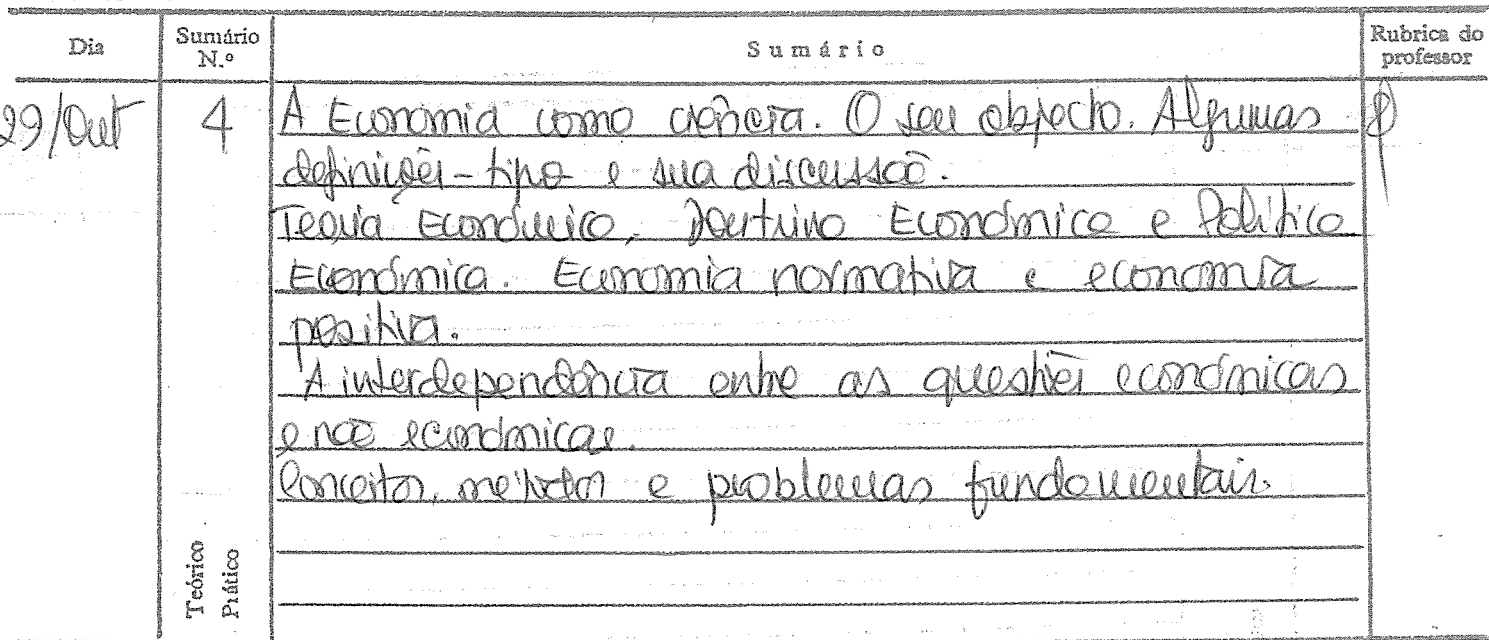 Dia
Sumário N.º
Sumário
Rubrica do professor
29/Out
4
A Economia como ciência. O seu objecto. Algumas
definições-tipo e sua discussão.
Teoria Económica, Doutrina Económica e Política
Económica. Economia normativa e economia
positiva.
A interdependência entre as questões económicas
e não económicas.
Conceitos, métodos e problemas fundamentais.
Teórico
Prático